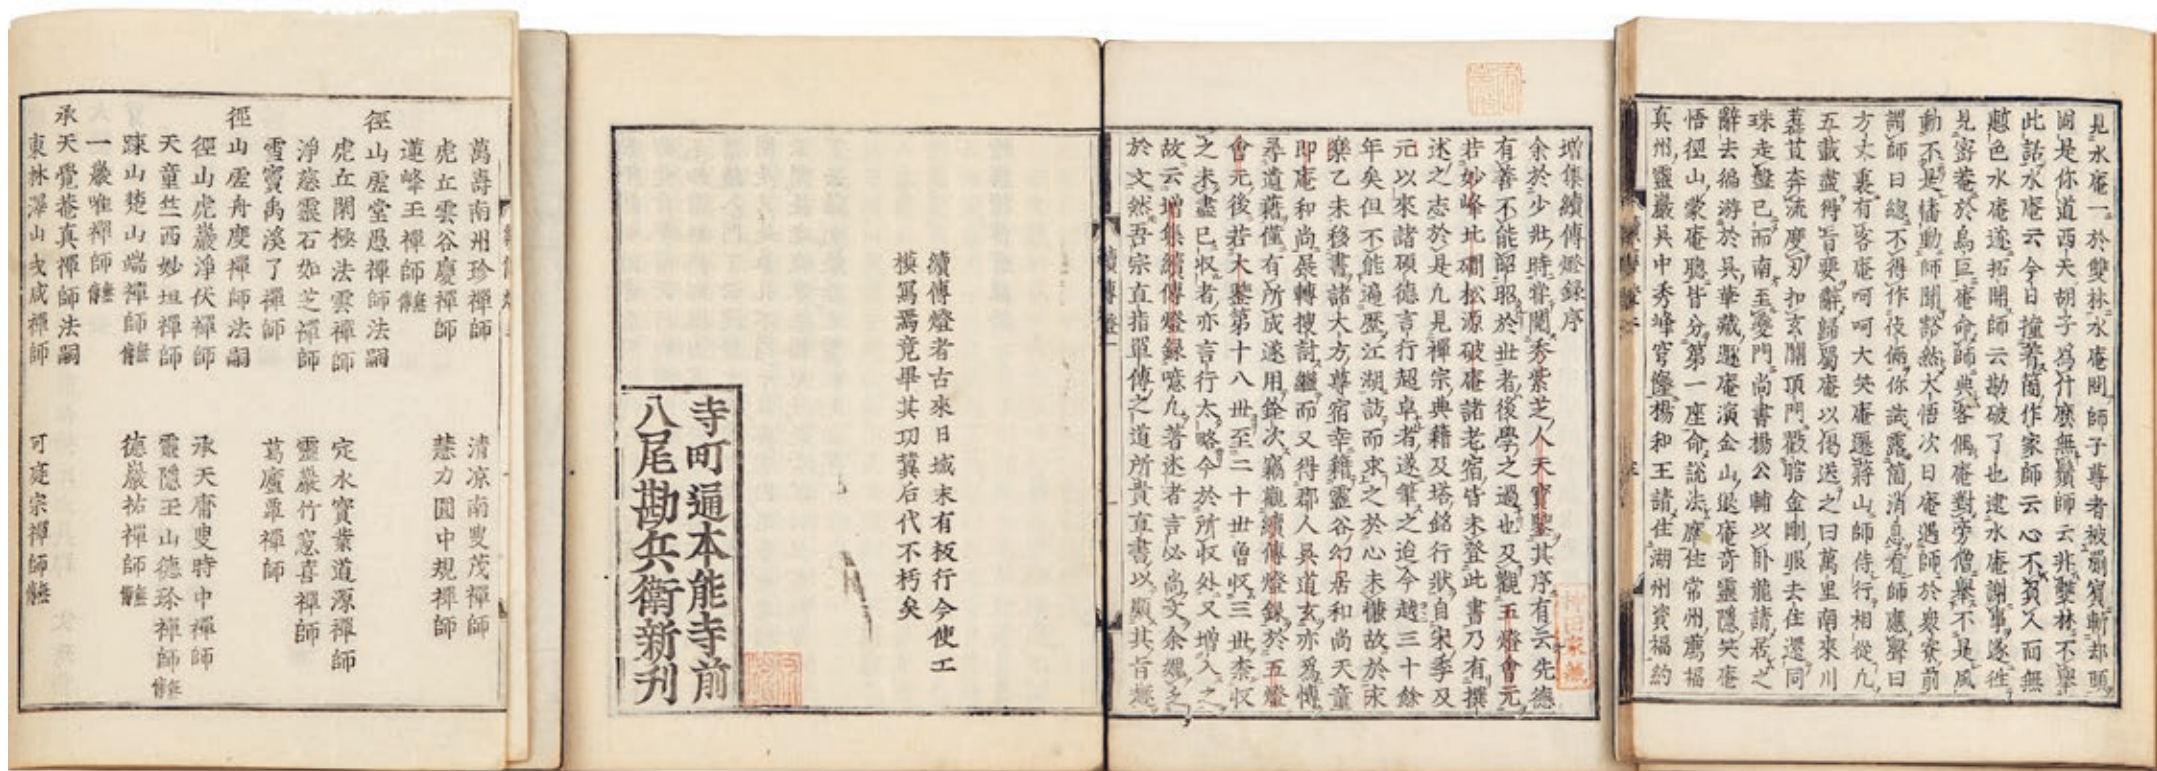 見水庵一於雙林水庵問師子尊者被罽賓斬却頭
固是你道西天胡子為什麼無鬚師云非雙林不舉
此話水庵云今日撞著箇作家師云心不負人面無
慙色水庵遂拓開師云勘破了也逮水庵謝事遂往
見密菴於烏巨庵命師典客偶庵對旁僧舉不是風
動不是幡動師聞豁然大悟次日庵遇師於衆寮前
謂師曰總不得作伎倆你試露箇消息看師應聲曰
方丈裏有客庵呵呵大笑庵遷蔣山師侍行相從凡
五載盡得旨要辭歸蜀庵以偈送之曰萬里南來川
苴奔流度刃扣玄關頂門戳瞎金剛眼去住還同
珠走盤已而南至夔門尚書楊公輔以卧龍請居之
辭去徧游於吳華藏遯庵演金山退庵奇靈隱笑庵
悟徑山蒙庵聰皆分第一座命說法住常州薦福
真州靈巖吳中秀峰穹窿楊和王諸住湖州資福約
增集續傳燈錄序
余於少壯時嘗閱秀紫芝人天寶鑒其序有云先德
有善不能昭昭於世者後學之過也又觀五燈會元
若妙峰北磵松源破庵諸老宿皆未登此書乃有撰
述之志於是凡見禪宗典籍及塔銘行狀自宋季及
元以來諸碩德言行超卓者遂筆之迨今越三十餘
年矣但不能遍歷江湖訪而求之於心未慊故於永
樂乙未移書諸大方尊宿幸籍靈谷幻居和尚天童
即庵和尚展轉搜討繼而又得郡人吳道玄亦為博
尋道藉僅有所成遂用銓次竊觀續傳燈錄於五燈
會元後若大鑒第十八世至二十世曾収三世柰収
之未盡已収者亦言行太略今於所収处又增入之
故云增集續傳燈錄噫凡著述者言必尚文余媿之
於文然吾宗直指單傳之道所貴直書以顯其旨趣
續傳燈者古來日域未有板行今使工
模寫焉竟畢其功冀后代不朽矣
寺町通本能寺前
八尾勘兵衛新刊
萬壽南州珍禪師 清凉南叟茂禪師
虎丘雲谷慶禪師 慧力圓中規禪師
蓮峰王禪師
徑山虛堂愚禪師法嗣
虎丘閑極法雲禪師 定水寶葉道源禪師
淨慈靈石如芝禪師 靈巖竹窓喜禪師
雪竇禹溪了禪師 葛廬覃禪師
徑山虛舟度禪師法嗣
徑山虎巖淨伏禪師 承天庸叟時中禪師
天童竺西妙坦禪師 靈隱玉山德珍禪師
踈山楚山端禪師 德巖祐禪師
一巖唯禪師
承天覺菴真禪師法嗣
東林澤山弋咸禪師 可庭宗禪師